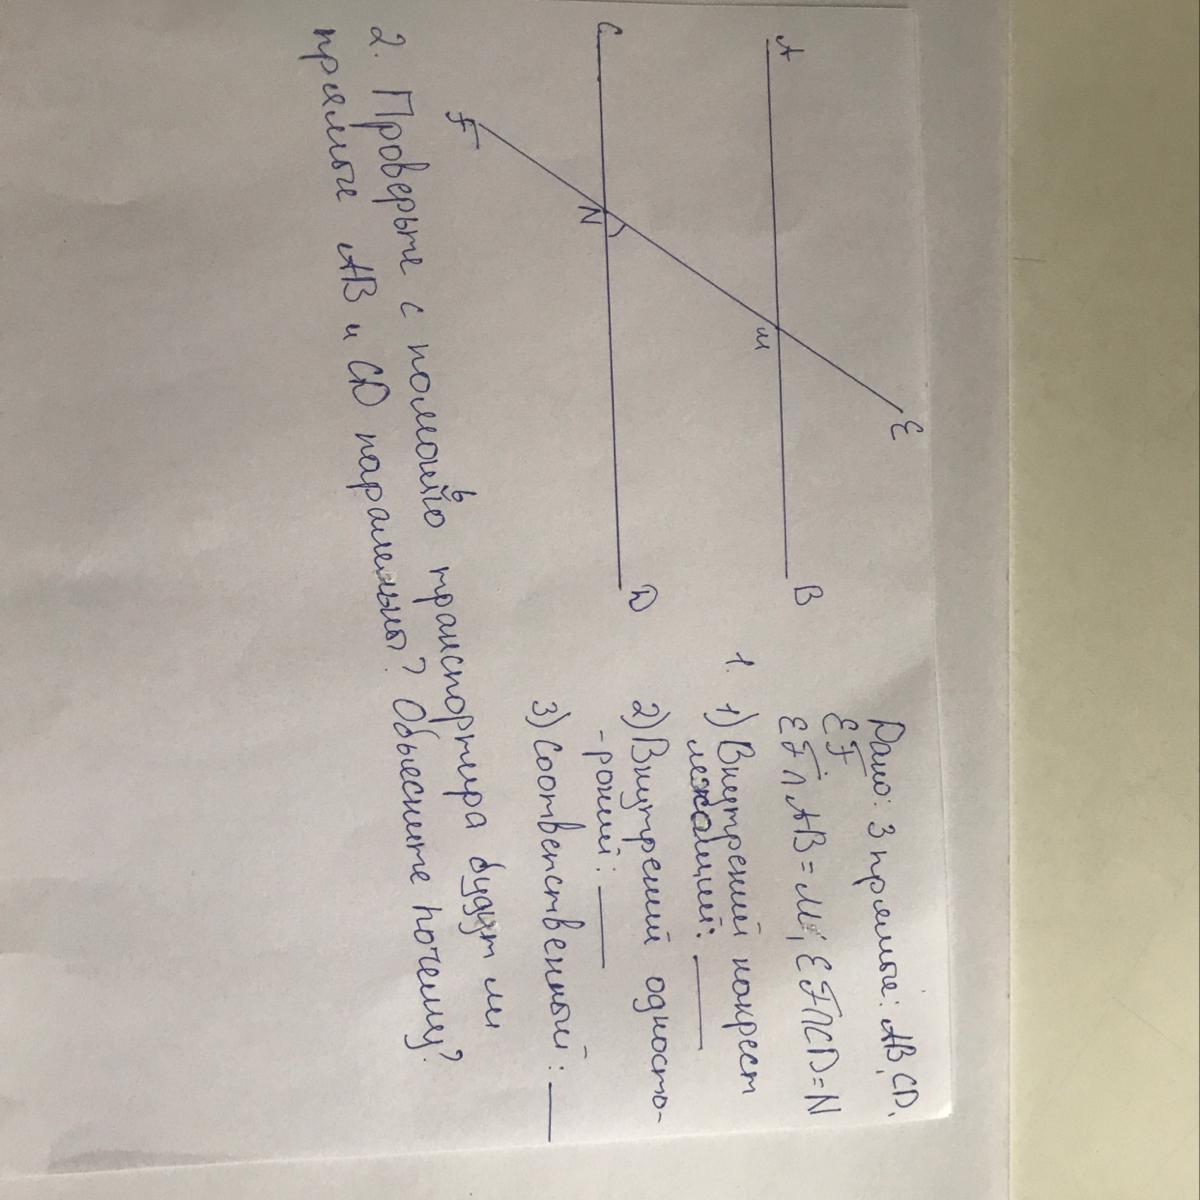 A
B
E
M
C
D
N
F
Дано: 3 прямые: AB, CD,
EF
EF∩AB=M; EF∩CD=N
1. 1) Внутрений накрест
лежащий: ___
2) Внутрений односто-
-роний: ___
3) Соответственный: ___
2. Проверьте с помощью транспортира будут ли
прямые AB и CD паралельны? Объесните почему?